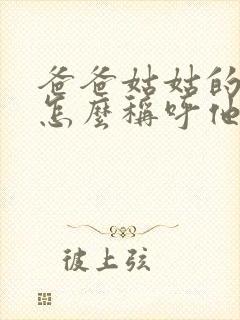 爸爸姑姑的
怎麼稱呼他
彼上弦